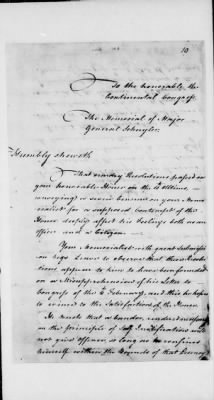 10
To the honorable, the
Continental Congress
The Memorial of Major
General Schuyler.
Humbly sheweth
That sundry Resolutions passed in
your honorable House on the
conveying a severe Censure on your Memo
rialist for a supposed Contempt of the
House deeply affect his Feelings both as an
officer and a Citizen
Your Memorialist with great Submission
begs Leave to observe that these Resolu
tions appear to him to have been founded
on a Misapprehension of his Letter to
Congress of the February, and this he hopes
to evince to the Satisfaction of the House
He trusts that a Candor
on the principles of Self Justification will
not give offence so long as he confines
himself within the Bounds of that Decency